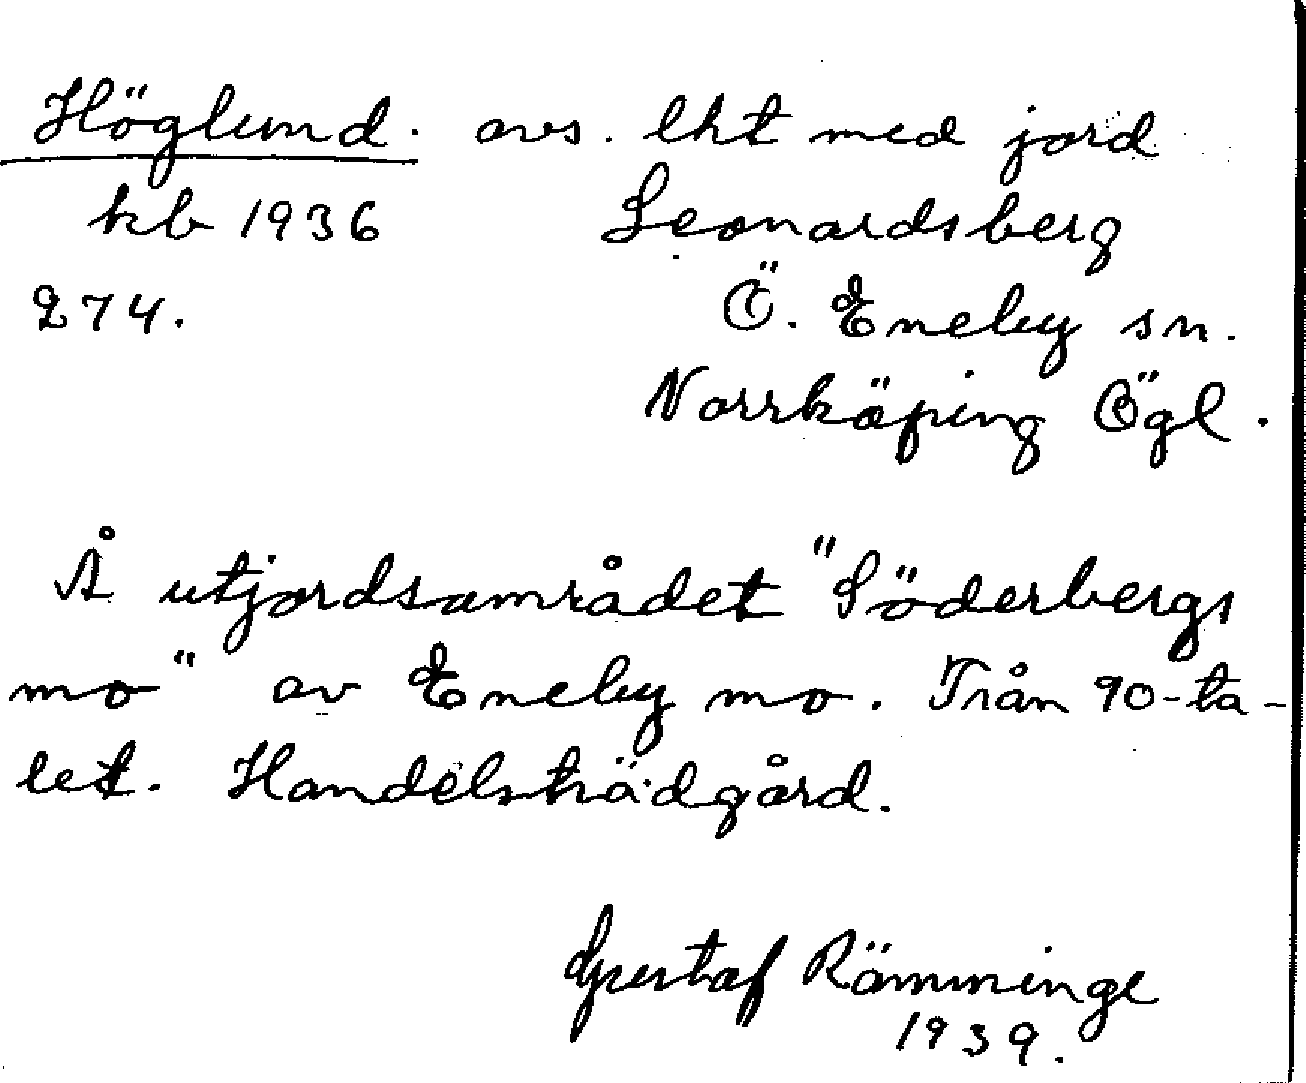 Höglund. avs. lht med jord
kb 1936 Leonardsberg
274. Ö. Eneby sn.
Norrköping Ögl.
Å utjordsområdet "Söderbergs
mo" av Eneby mo. Från 90-ta-
let. Handelsträdgård.
Gustaf Rämminge
1939.